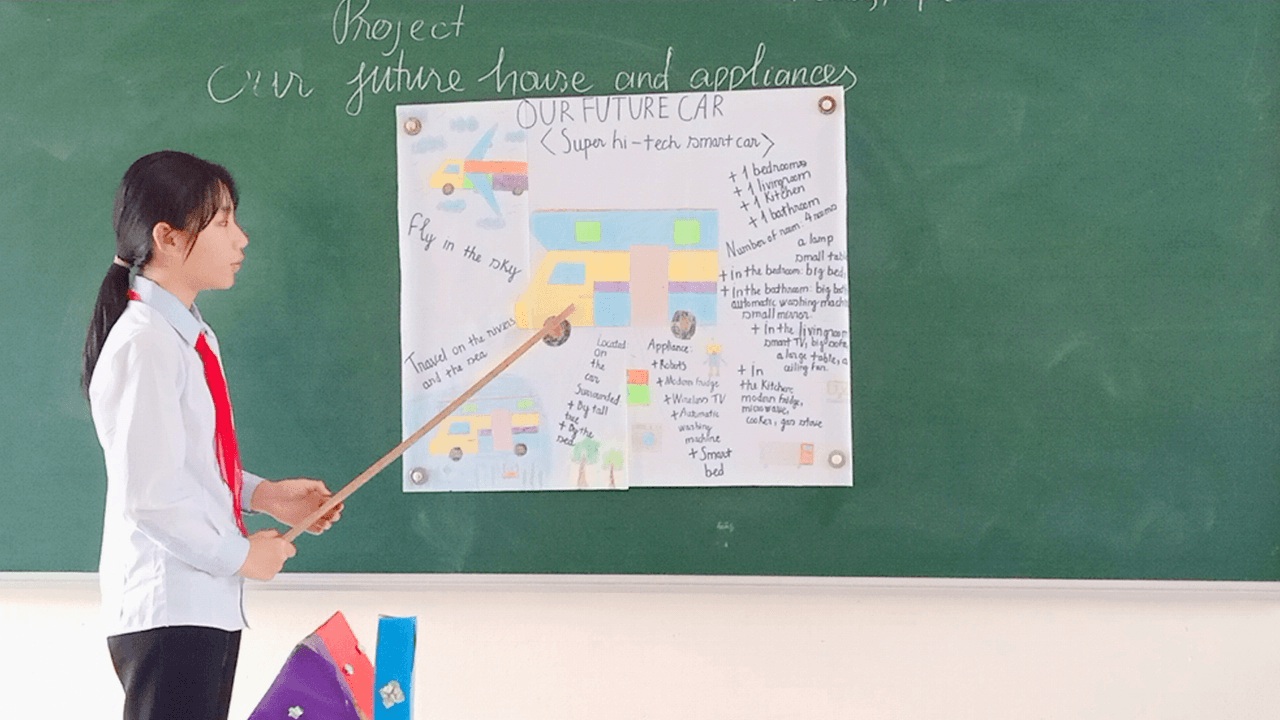 Project
Our future house and appliances
OUR FUTURE CAR
<Super hi-tech smart car>
Fly in the sky
Travel on the rivers
and the sea
Located
on
the
car
Surrounded
+ Big tall
tree
+ By the
sea
Appliance:
+ Robots
+ Modern fridge
+ Wireless TV
+ Automatic
washing
machine
+ Smart
bed
+ 1 bedrooms
+ 1 livingroom
+ 1 Kitchen
+ 1 bathroom
Number of room: 4 rooms
a lamp
small
+ In the bedroom: big bed,
+ In the bathroom: big
automatic washing
small mirror
+ In the livingroom
smart TV, big sofa
a large table, a
ceiling fan.
+ In
the Kitchen:
modern fridge,
microwave,
cooker, gas stove